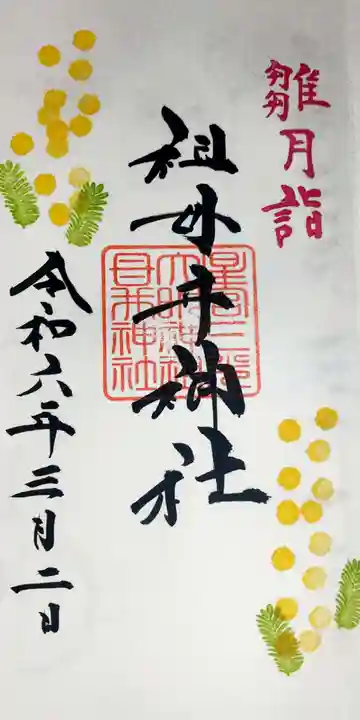 雛月詣
祖母井神社
令和六年三月二日